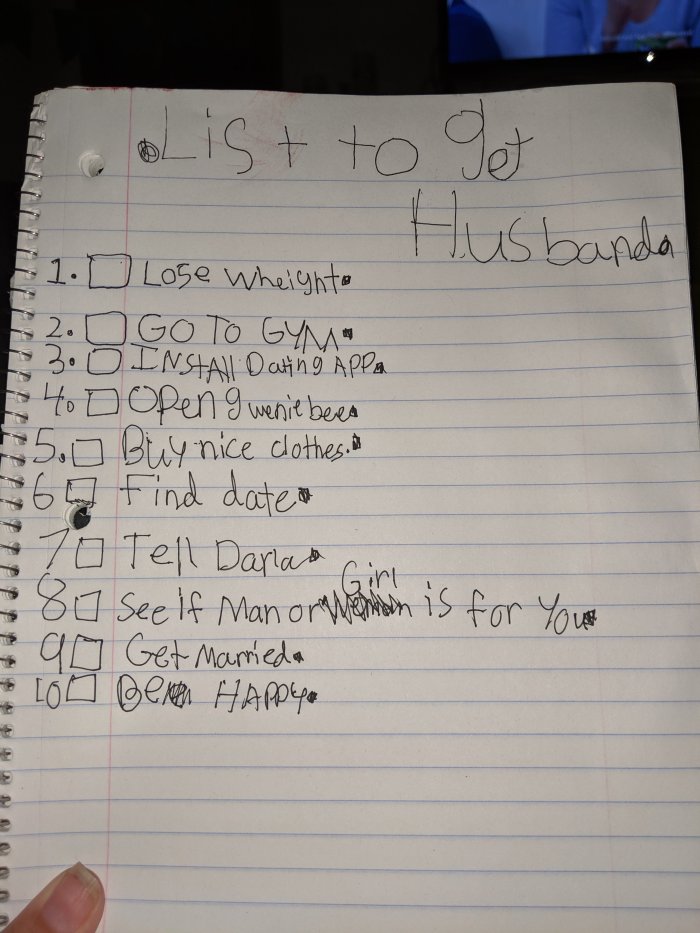 List to get
Husband
1. Lose wheight.
2. GO TO GYM.
3. INSTAll Dating APP.
4. Open 9 wenie bees
5. Buy nice clothes.
6 Find date.
7 Tell Darla.
Girl
8 See if Man or is for You.
9 Get Married.
10 Be HAPPy.